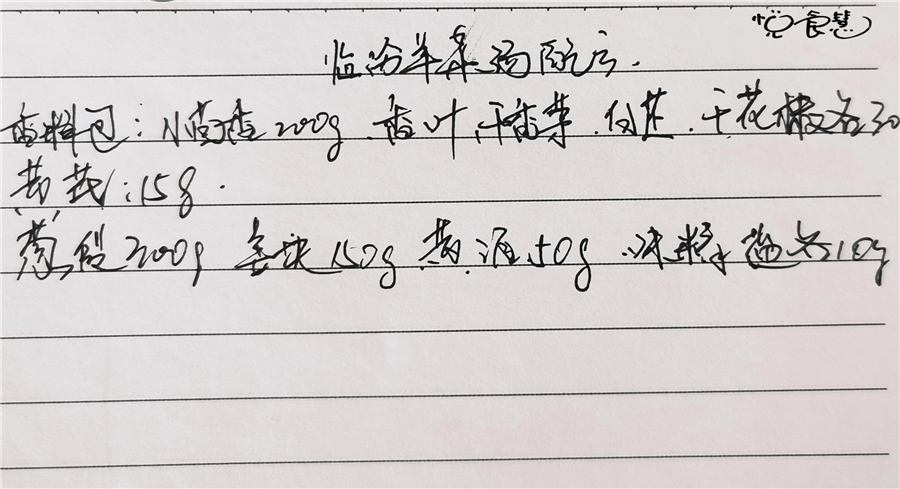 悦食慧
临汾羊杂汤配方.
香料包：小茴香200g 香叶、干香菜、白芷、干花椒各30
黄芪：15g.
葱段200g 姜块150g 黄酒50g 冰糖、盐各10g